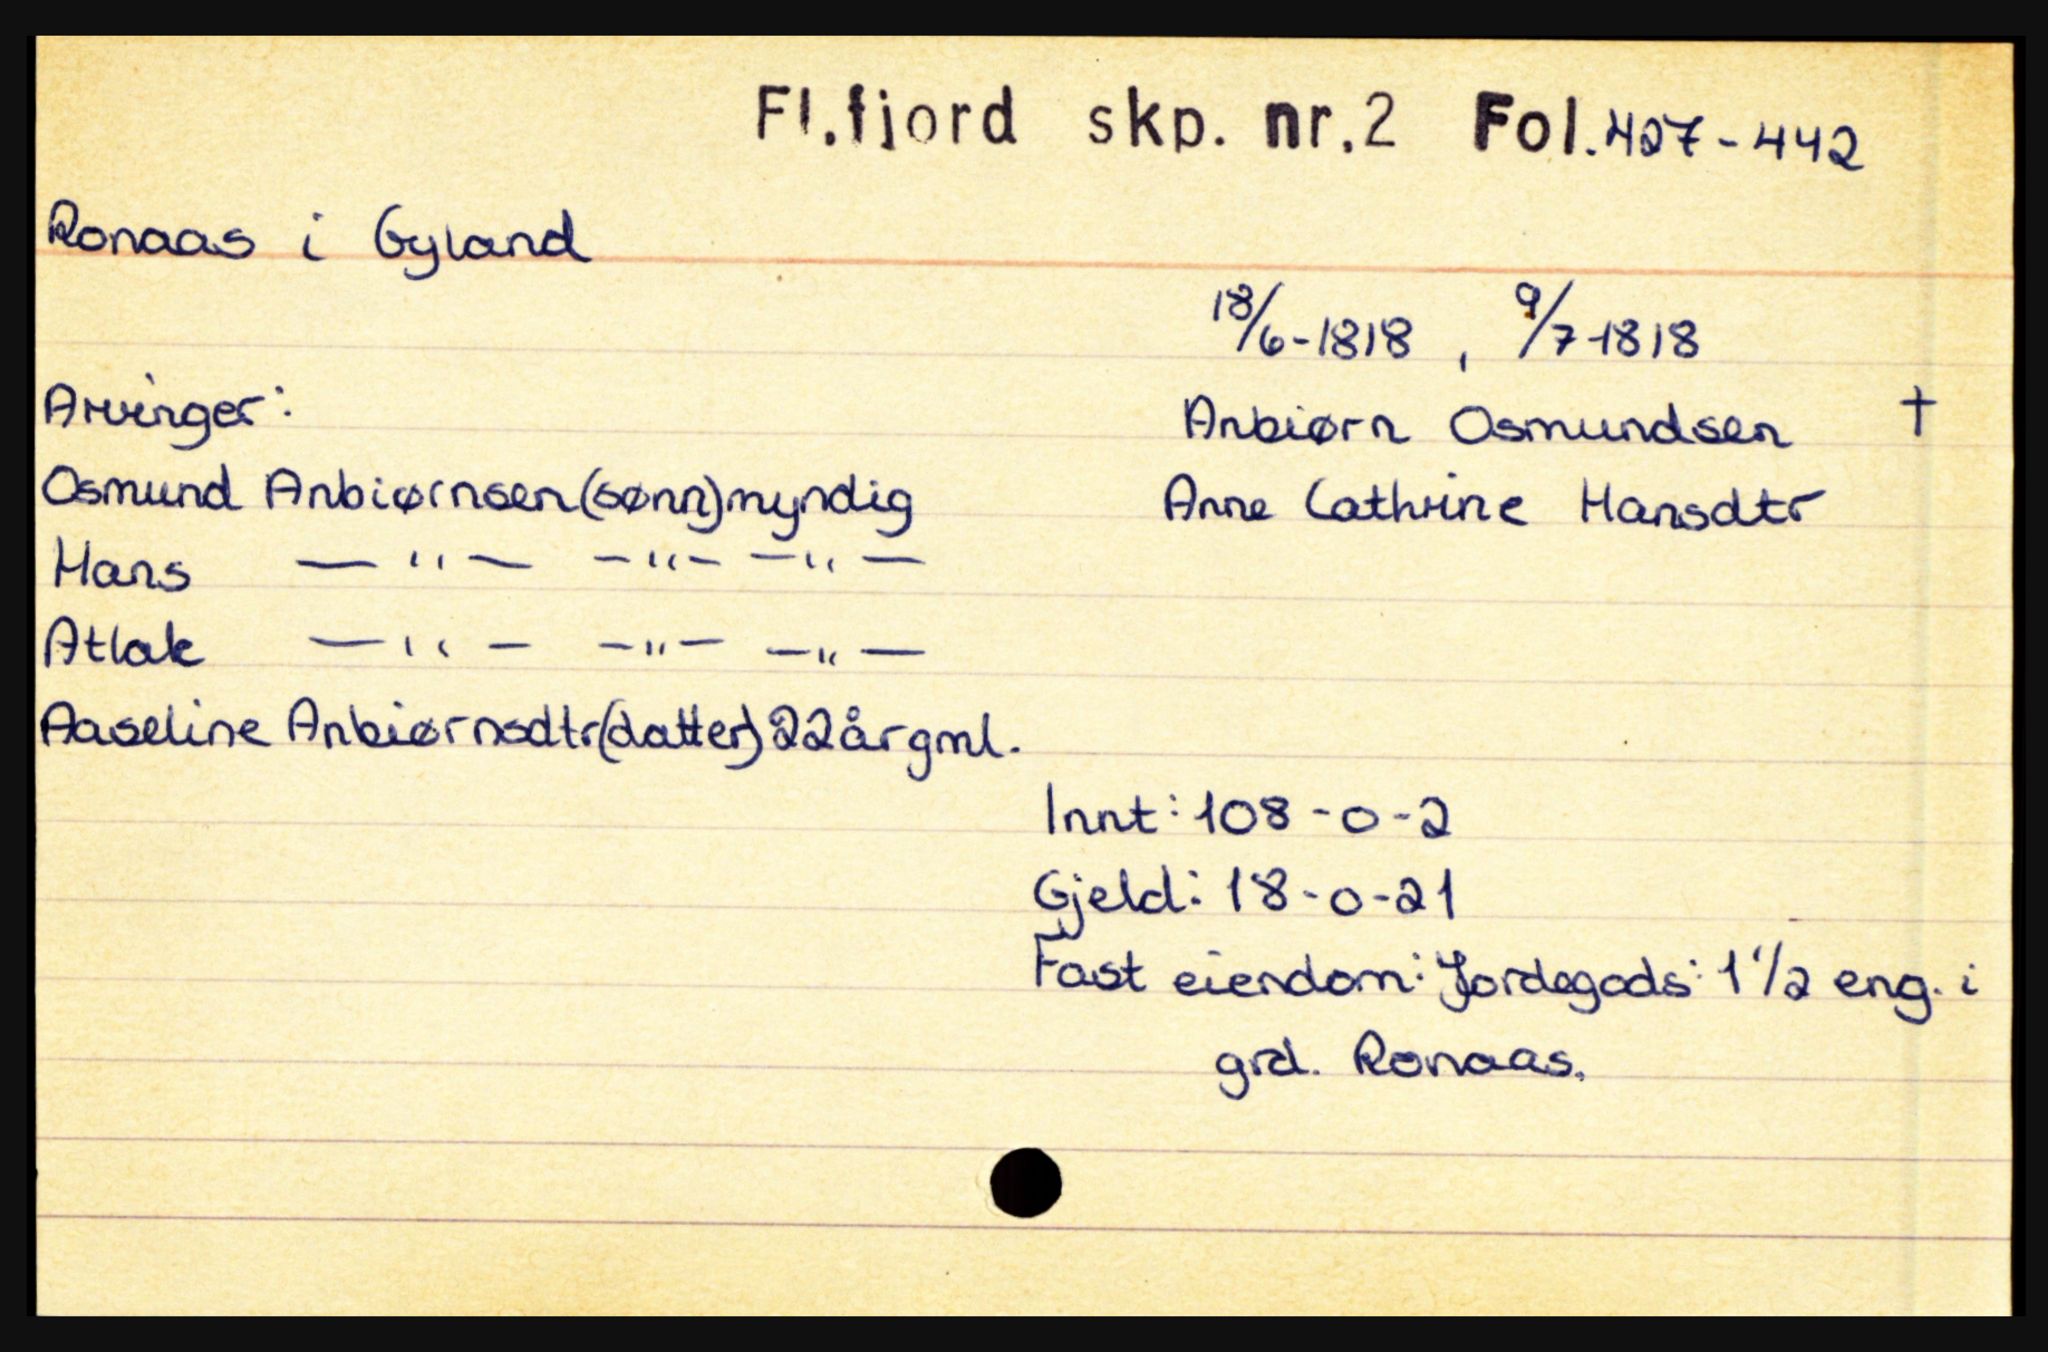 Fl.fjord skp. nr.2 Fol.427-442
Ronaas i Gyland
18/6-1818 , 9/7-1818
Arvinger:
Anbiørn Osmundsen †
Osmund Anbiørnsen (sønn) myndig
Anne Cathrine Hansdtr
Hans — " — — " — — " —
Atlak — " — — " — — " —
Aaseline Anbiørnsdtr (datter) 22 år gml.
Innt: 108-0-2
Gjeld: 18-0-21
Fast eiendom: Jordegods: 1 1/2 eng. i
grd. Ronaas.